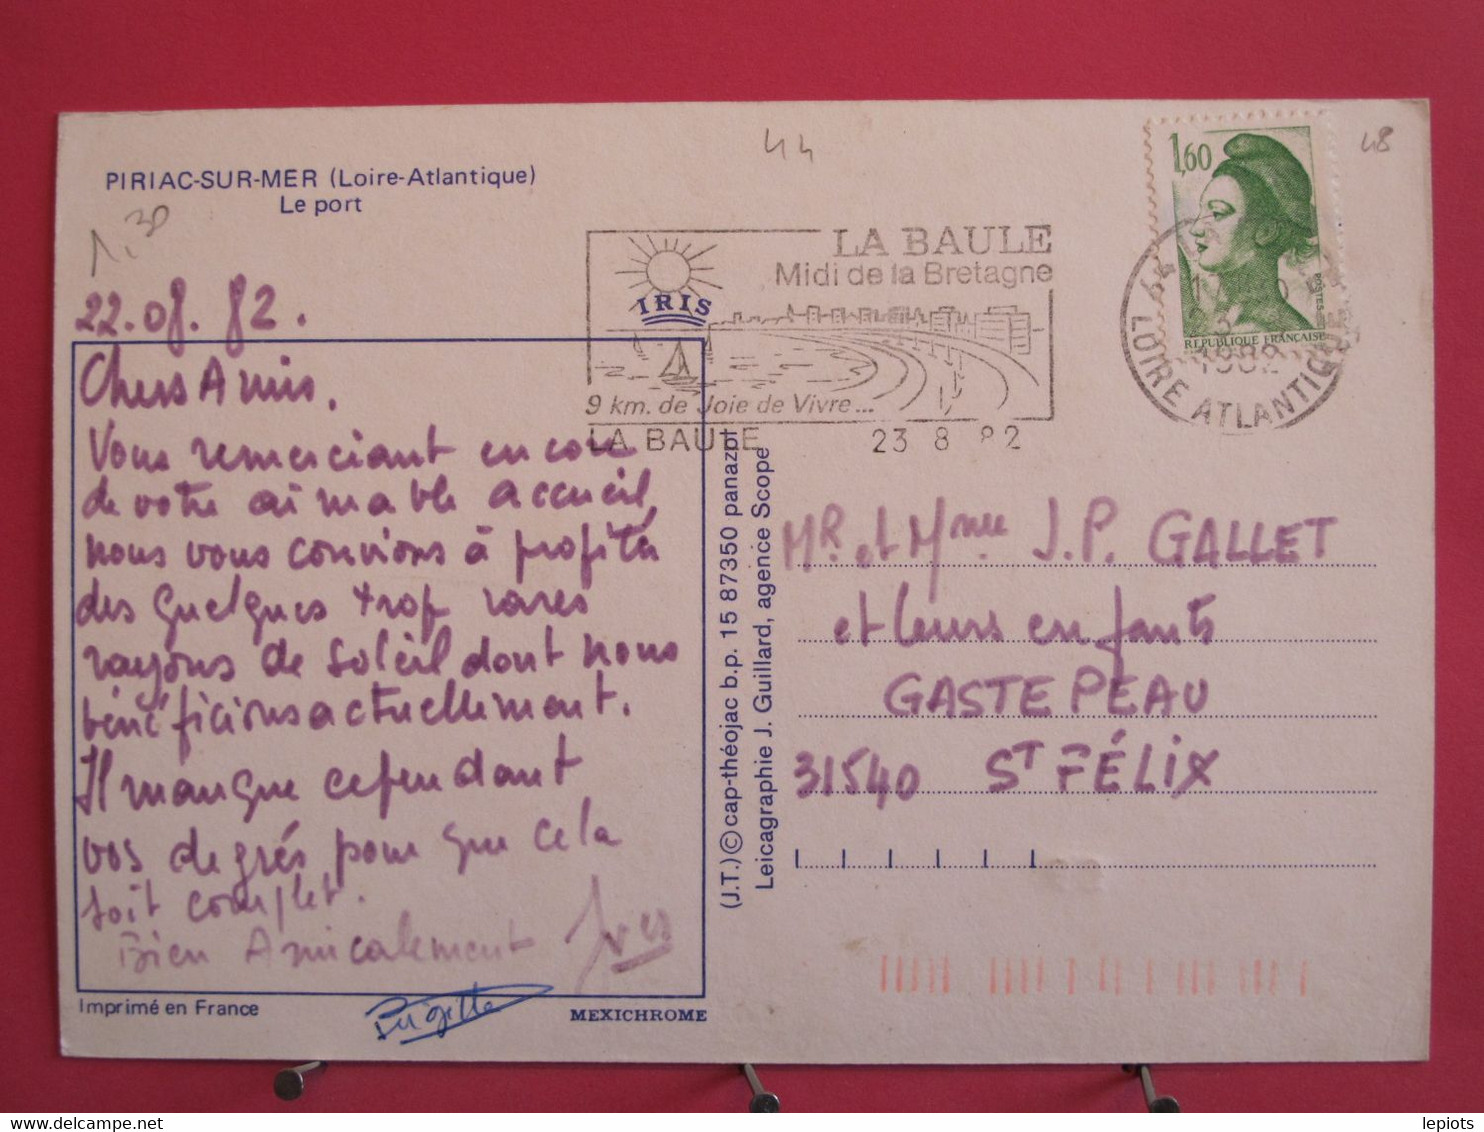 44
48
PIRIAC-SUR-MER (Loire-Atlantique)
Le port
1,30
1,60
POSTES
REPUBLIQUE FRANÇAISE
LA BAULE
Midi de la Bretagne
IRIS
9 km. de Joie de Vivre...
LA BAULE 23 8 82
44
1982
LOIRE ATLANTIQUE
22.08.82.
Chers Amis.
Vous remerciant encore
de votre aimable accueil
nous vous convions à profiter
des quelques trop rares
rayons de soleil dont nous
bénéficions actuellement.
Il manque cependant
vos degrés pour que cela
soit complet.
Bien Amicalement Yves
Brigitte
Imprimé en France
MEXICHROME
(J.T.) © cap-théojac b.p. 15 87350 panazol
Leicagraphie J. Guillard, agence Scope
MR. et Mme J.P. GALLET
et leurs enfants
GASTEPEAU
31540 ST FÉLIX
lepiots